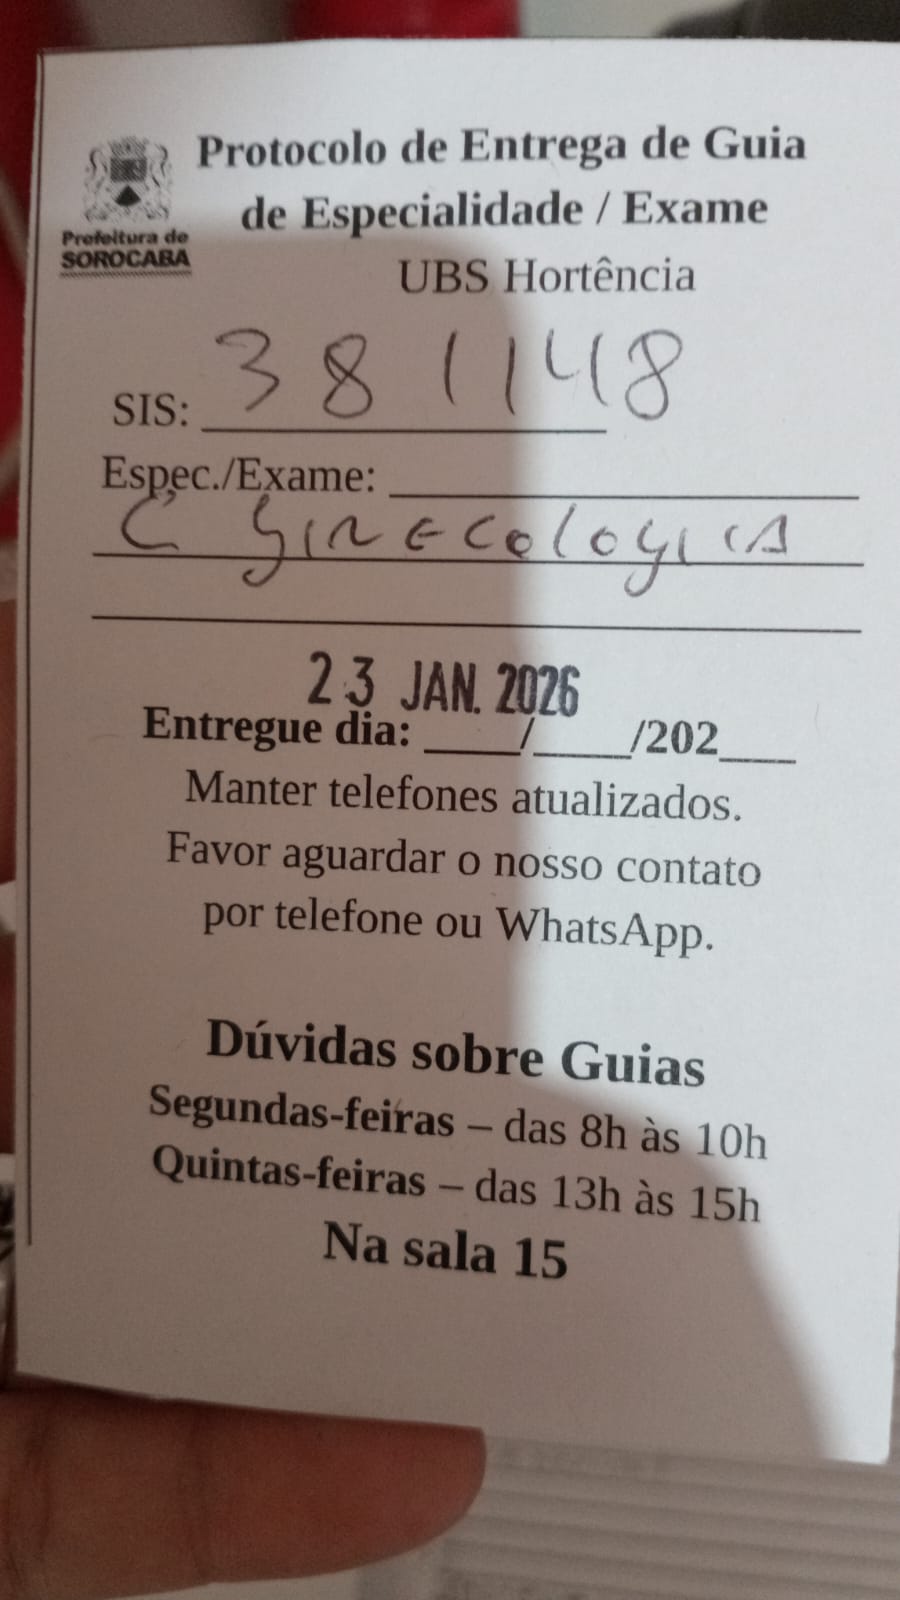 Protocolo de Entrega de Guia
de Especialidade / Exame
Prefeitura de
SOROCABA
UBS Hortência
SIS: 381148
Espec./Exame:
C Ginecologica
23 JAN. 2026
Entregue dia: ____/____/202___
Manter telefones atualizados.
Favor aguardar o nosso contato
por telefone ou WhatsApp.
Dúvidas sobre Guias
Segundas-feiras – das 8h às 10h
Quintas-feiras – das 13h às 15h
Na sala 15